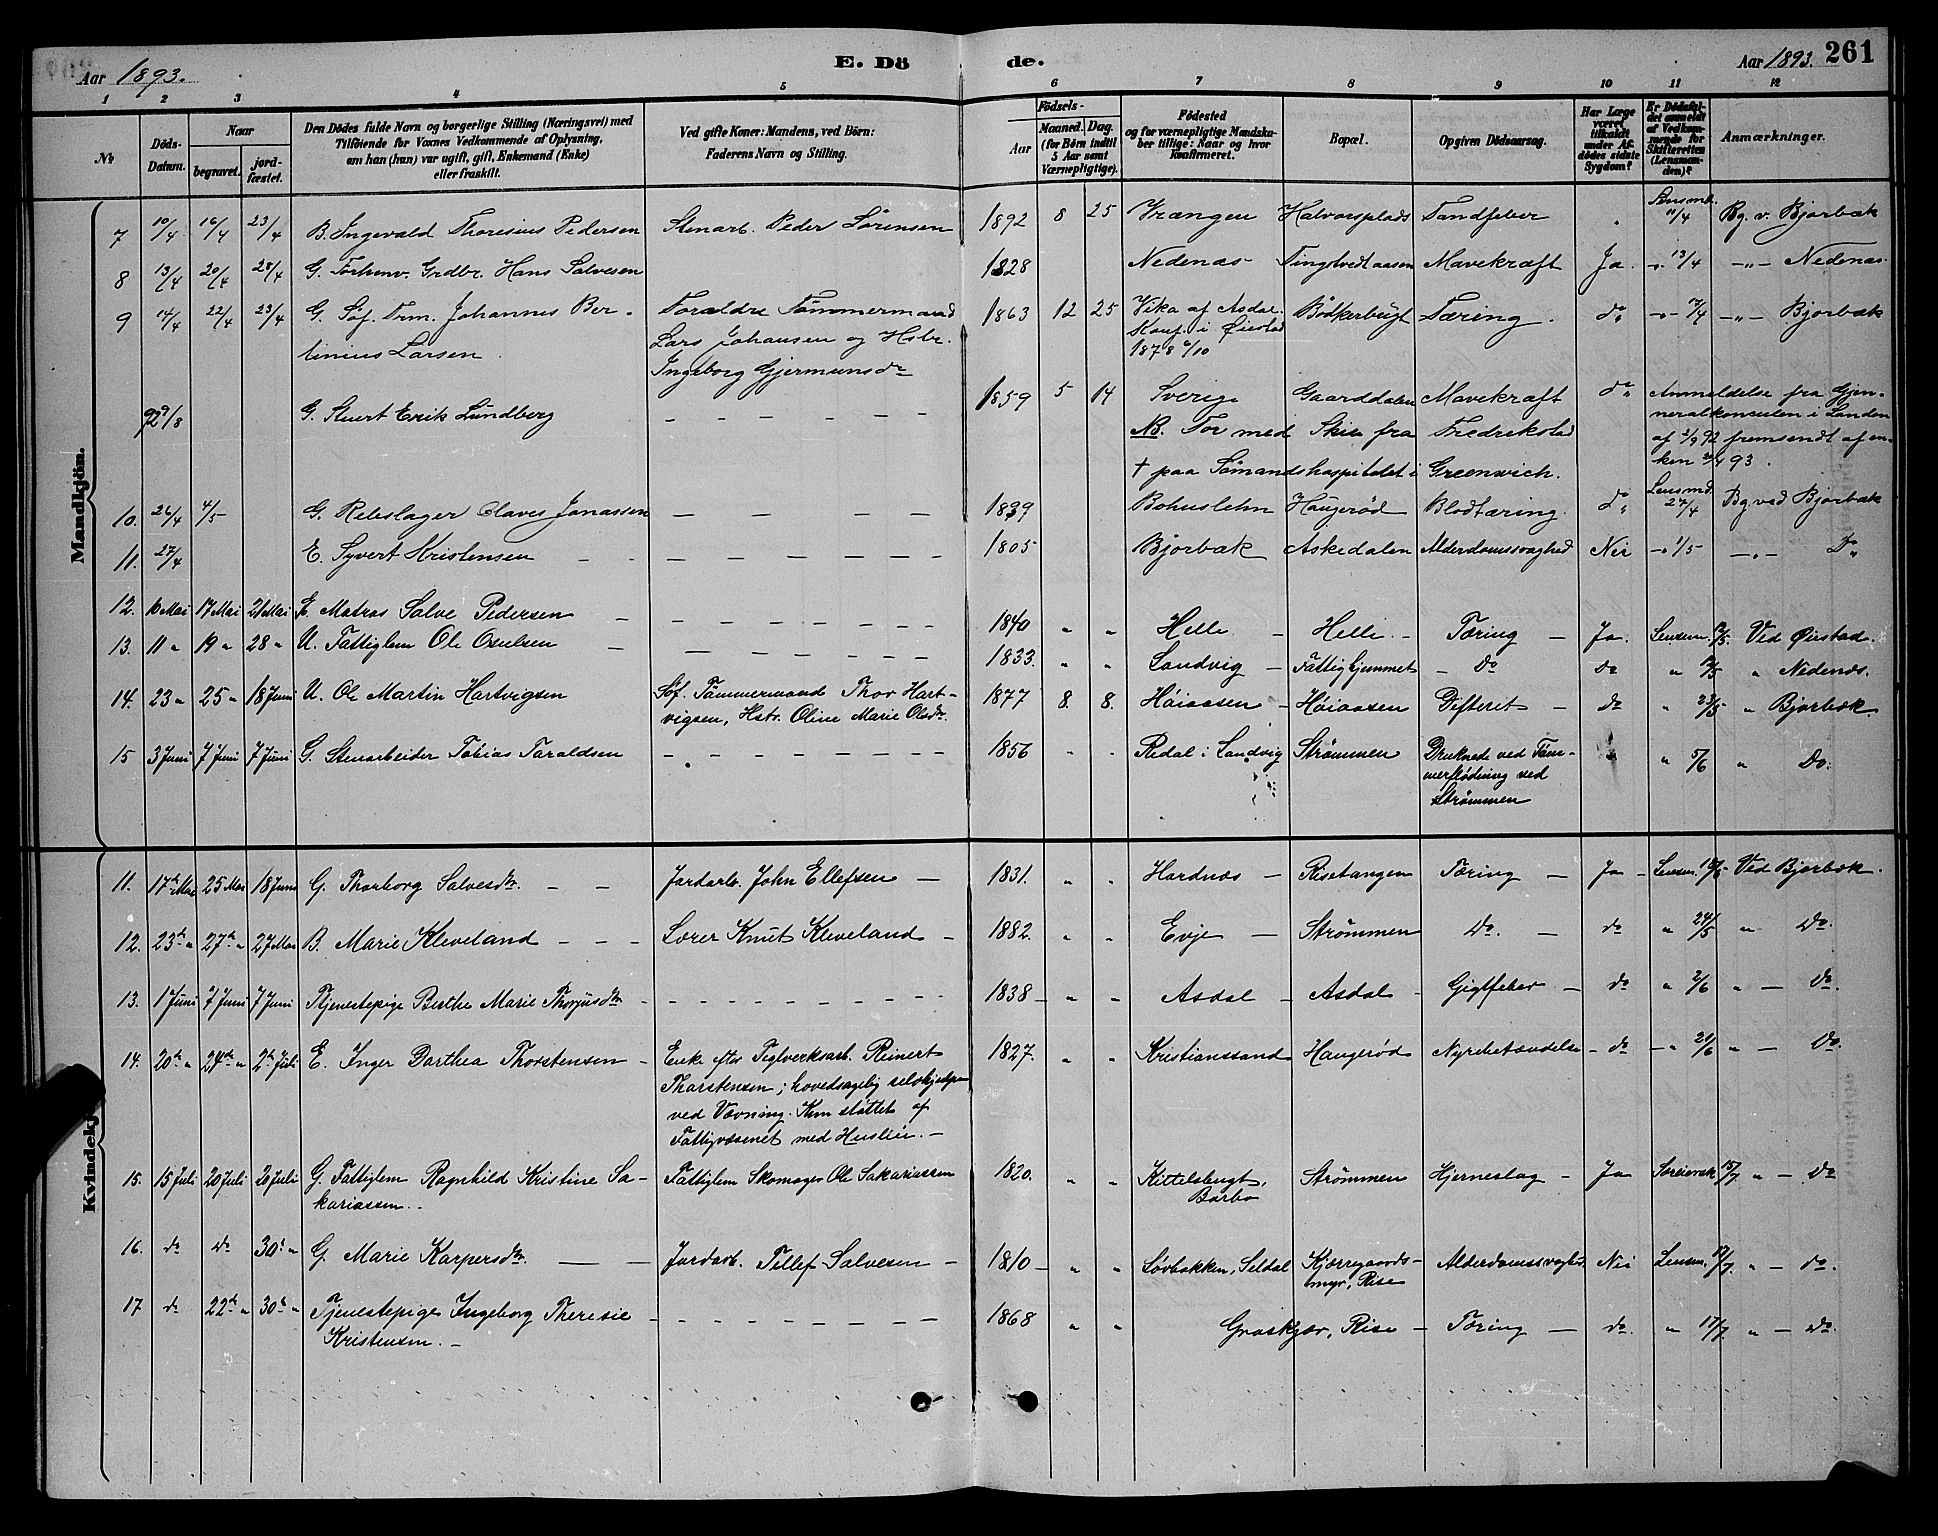 Aar 1893. E. Dö de. Aar 1893. 261
1 2 3 4 5 6 7 8 9 10 11 12
No Döds-Datum. Naar begravet. jord-fæstet. Den Dödes fulde Navn og borgerlige Stilling (Næringsvei) med Tilföiende for Voxnes Vedkommende af Oplysning, om han (hun) var ugift, gift, Enkemand (Enke) eller fraskilt. Ved gifte Koner: Mandens, ved Börn: Faderens Navn og Stilling. Födsels- Aar Maaned. Dag. (for Börn indtil 5 Aar samt Værnepligtige). Födested og for værnepligtige Mandskaber tillige: Naar og hvor Konfirmeret. Bopæl. Opgiven Dödsaarsag. Har Læge været tilkaldt under Afdödes sidste Sygdom? Er Dödsfaldet anmeldt af Vedkommende for Skifteretten (Lensmanden)? Anmærkninger.
Mandkjön.
7 10/4 16/4 23/4 B. Ingevald Thoresius Pedersen Stenarb. Peder Sörensen 1892 8 25 Vrængen Halvorsplads Tandfeber " Lensmd. 11/4 Bg. v. Bjorbæk
8 13/4 20/4 23/4 G. Forhenv. Grdbr. Hans Salvesen 1828 Nedenæs Tingstvedtaasen Mavekræft Ja. -"- 13/4 -"- Nedenæs
9 14/4 22/4 23/4 G. Söf. Trm. Johannes Ber-
tinius Larsen. Foraldre Tömmermand
Lars Johansen og Hstr.
Ingeborg Gjermunsdr 1863 12 25 Vika af Asdal.
Konf. i Øiestad
1878 6/10 Bödkerbugt Tæring. do -"- 17/4 -"- Bjorbæk
92 9/8 G. Stuert Erik Lundberg — — — — — 1859 5 14 Sverige Gaarddalen Mavekræft do Anmeldelse fra Gjen-
neralkonsulen i London
NB. For med Skib fra Fredrikstad af 2/9 92 fremsendt af en-
† paa Sömandshospitalet i Greenwich. ken 24/4 93.
10. 26/4 4/5 G. Rebslager Olaves Jonassen — — — — — 1839 Bohuslehn Haugerød Blodtæring. do Lensmd. 27/4 Bg. ved Bjorbæk
11. 27/4 E. Syvert Kristensen — — — — — 1805 Bjorbæk Askedalen Alderdomssvaghed Nei -"- 1/5 -"- Do
12. 6 Mai 17 Mai 21 Mai E. Matros Salve Pedersen — — — — — 1840 " " Helle. — Helle. — Tæring — Ja. Lensm. Ved Øiestad.
13. 11 " 19 " 28 " U. Fattiglem Ole Osulsen — — — — — 1833. " " Landvig — Fattighjemmet — Do do " " Nedenæs.
14. 23 " 25 " 18 Juni U. Ole Martin Hartvigsen Söf. Tömmermand Thor Hart-
vigsen, Hstr. Oline Marie Olsdr. 1877 8. 8. Höiaasen — Höiaasen Difterit — do " 23/5 " Bjorbæk.
15 3 Juni 7 Juni 7 Juni G. Stenarbeider Tobias Taraldsen — — — — — 1856 " " Redal i Landvig Strömmen Druknede ved Töm-
merflödning ved
Strömmen " 5/6 " Do.
Kvindekj
11. 17de Mai 25 Mai 18 Juni G. Thorborg Salvesdr. — — Jordarb. John Ellefsen — 1831. " " Hardnæs — Risetangen Tæring — Ja — Lensm. 18/5 Ved Bjorbæk.
12. 23de " 27de " 27 Mai B. Marie Kleveland — — — Lærer Knut Kleveland — 1882. " " Evje — Strömmen Do. — do " 24/5 " Do.
13. 1 Juni 7 Juni 7 Juni Tjenestepige Berthe Marie Thorjusdr — — — — — 1838 — " " Asdal — Asdal — Gigtfeber — do " 2/6 " — Do.
14. 20de " 24de " 2de Juli E. Inger Dorthea Thorstensen — Enke efter Teglverksarb. Reinert
Thorstensen; hovedsagelig selvhjulpen
ved Vævning. Kun støttet af
Fattigvæsenet med Husleie. — 1827. " " Kristianssand Haugerød Nyrebetændelse — do — " 20/6 " — Do.
15. 15 Juli 20 Juli 20 Juli G. Fattiglem Ragnhild Kristine Sa-
kariassen. — Fattiglem Skomager Ole Sakariassen 1820. " " Kittelsbugt,
Barbo Strömmen Hjerneslag — Ja 15/7 " — Do
16. do Do 30te " G. Marie Karpersdr. — — Jordarb. Tellef Salvesen — 1810 — " " Lövbakken, Seldal Kjærregaards-
myr, Rise Alderdomssvaghed Nei Lensm. 17/7. " — do.
17 do 22de " 30te " Tjenestepige Ingeborg Theresie
Kristensen. — — — — — — 1868 " " Graskjær, Rise — Tæring — do. " 17/7. " — Do.